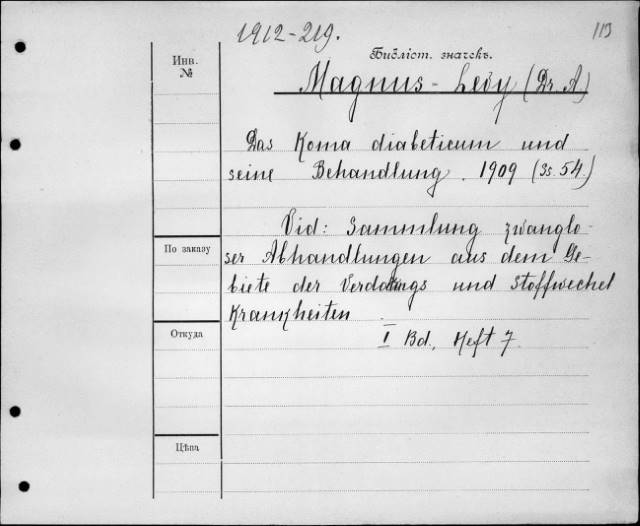 1912-219.
113
Инв.
№
Библіот. значекъ.
Magnus-Levy (Dr. A)
Das Koma diabeticum und
seine Behandlung. 1909 (Ss. 54.)
Vid: Sammlung zwanglo-
ser Abhandlungen aus dem Ge-
biete der und Stoffwechsel
Krankheiten.
I Bd., Heft 7.
По заказу
Откуда
Цѣна